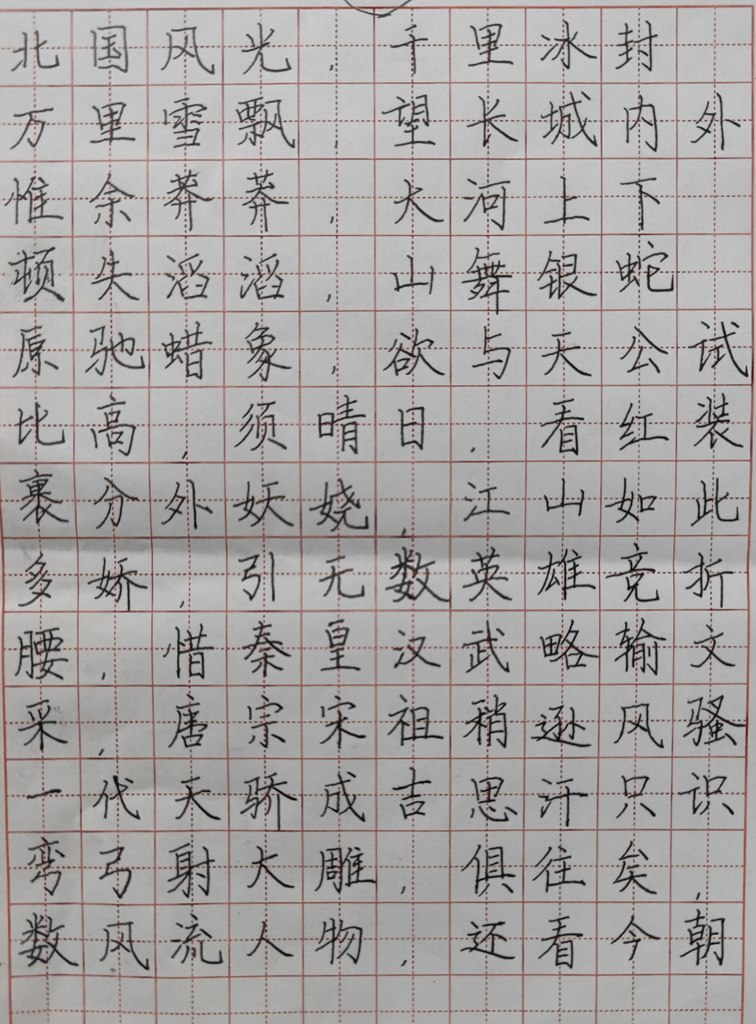 北国风光，千里冰封
万里雪飘，望长城内外
惟余莽莽，大河上下
顿失滔滔，山舞银蛇
原驰蜡象，欲与天公试
比高，须晴日，看红装
裹分外妖娆，江山如此
多娇，引无数英雄竞折
腰，惜秦皇汉武略输文
采，唐宗宋祖稍逊风骚
一代天骄成吉思汗只识
弯弓射大雕，俱往矣，
数风流人物，还看今朝